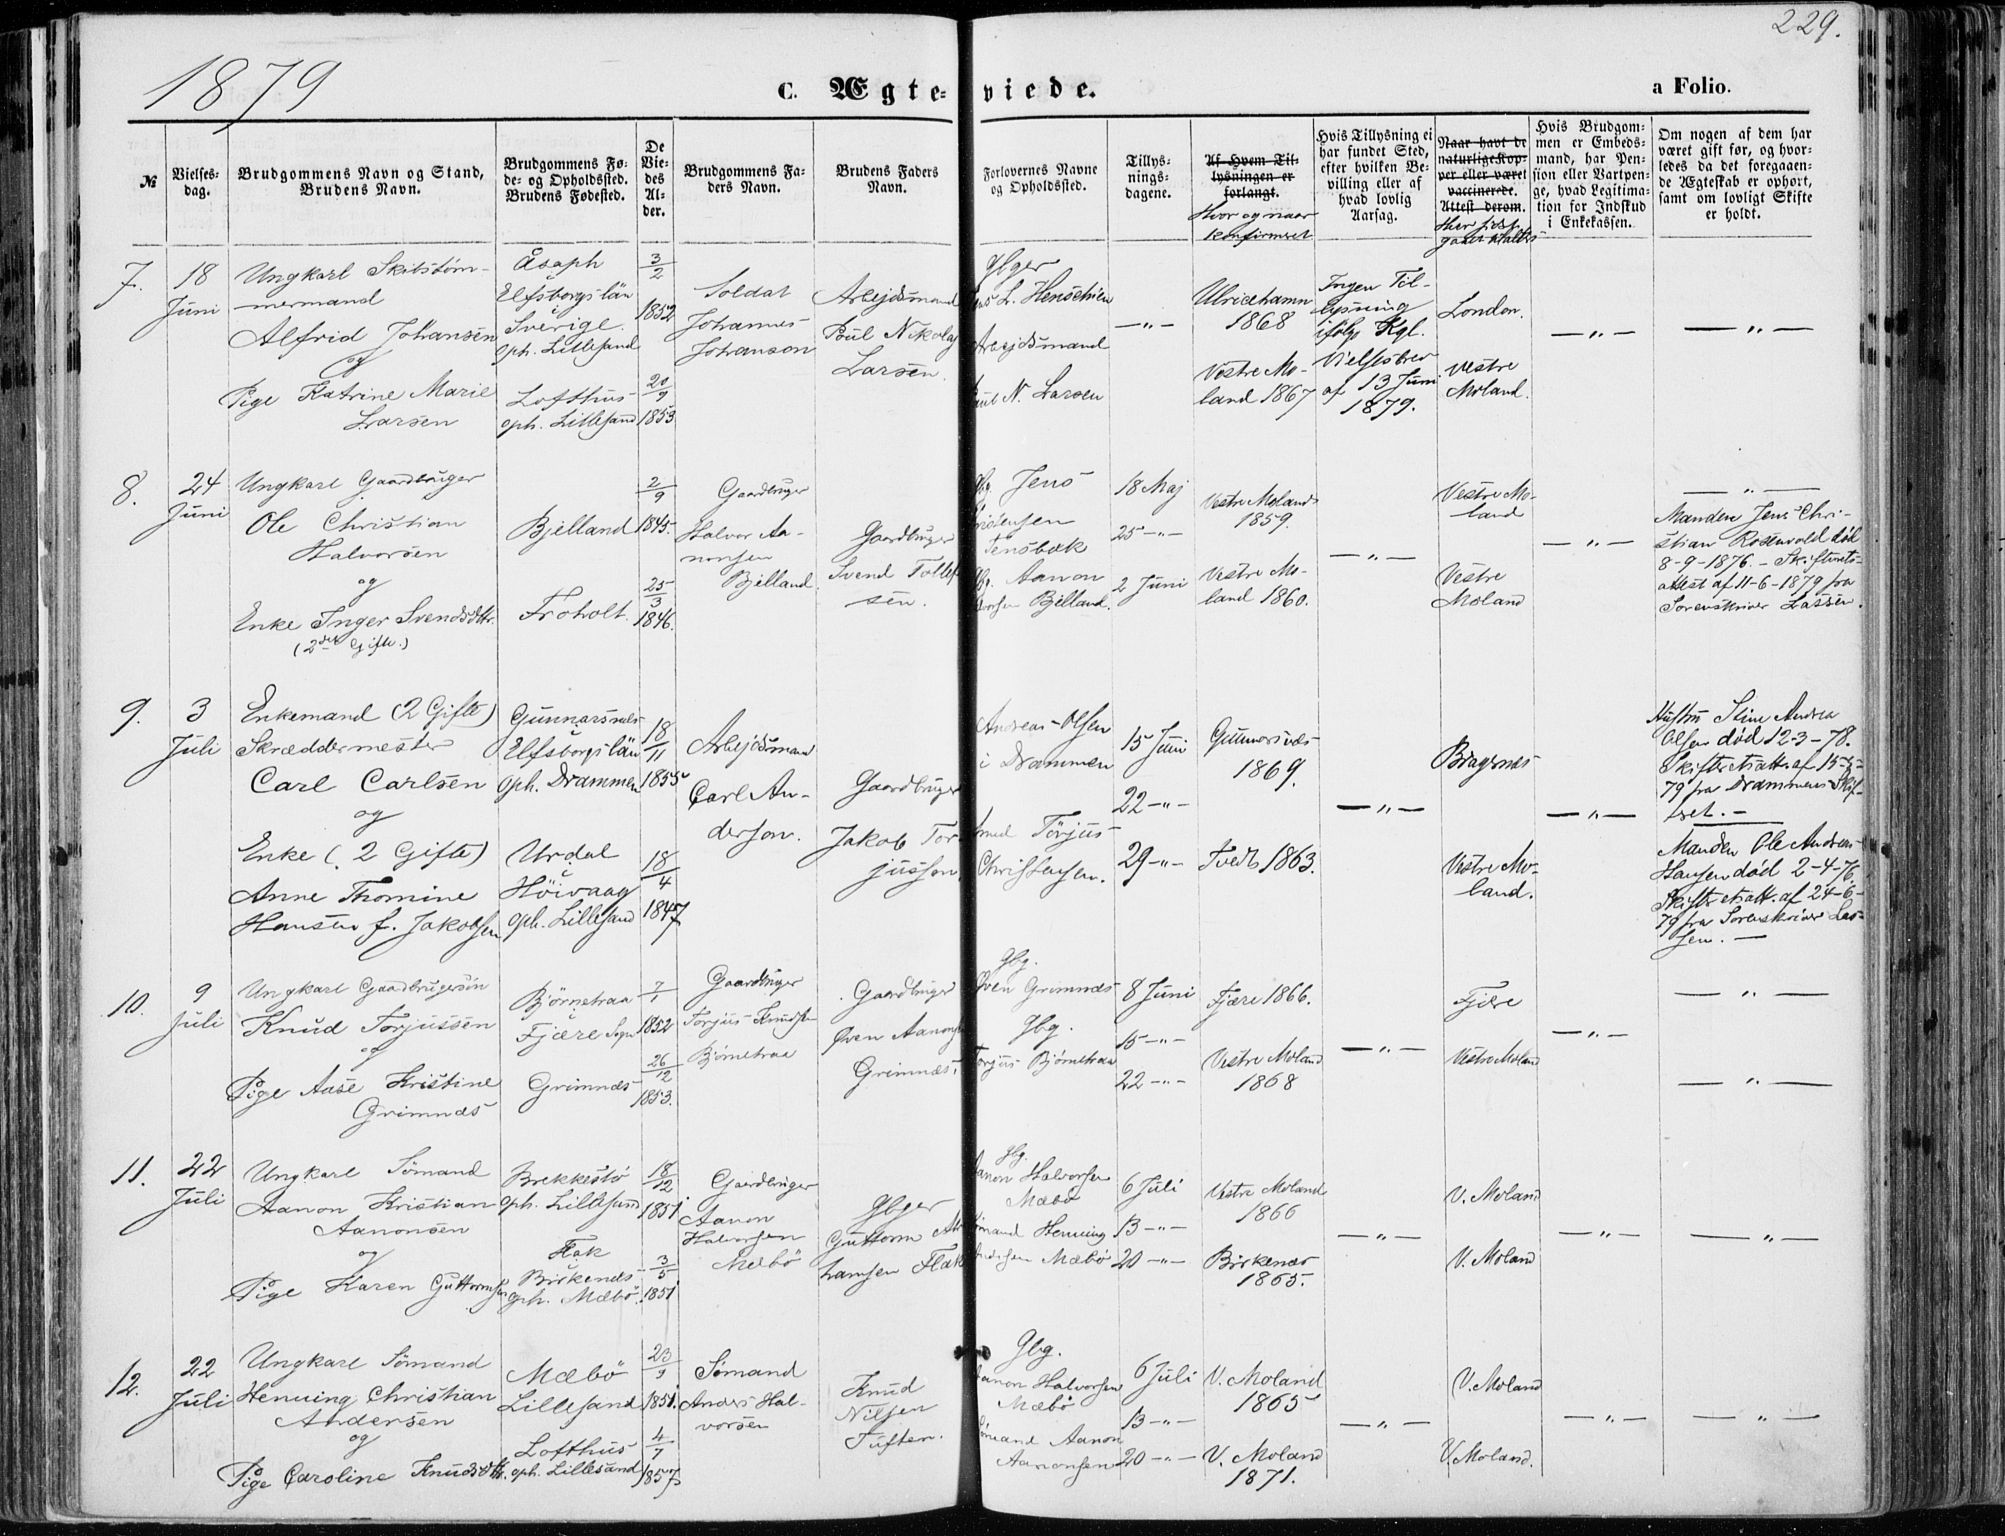 1879
C. Ægteviede.
229.
a Folio.
№
Vielsesdag.
Brudgommens Navn og Stand, Brudens Navn.
Brudgommens Føde- og Opholdssted. Brudens Fødested.
De Viedes Alder.
Brudgommens Faders Navn.
Brudens Faders Navn.
Forlovernes Navne og Opholdssted.
Tillysningsdagene.
Af Hvem Tillysningen er forlangt.
Hvor og naar konfirmeret
Hvis Tillysning ei har fundet Sted, efter hvilken Bevilling eller af hvad lovlig Aarsag.
Naar havt de naturlige Kopper eller været vaccinerede. Attest derom.
Hvis Brudgommen er Embedsmand, har Pension eller Vartpenge, hvad Legitimation for Indskud i Enkekassen.
Om nogen af dem har været gift før, og hvorledes da det foregaaende Ægteskab er ophørt, samt om lovligt Skifte er holdt.
7.
18
Juni
Ungkarl Skibstøm-
mermand
Alfrid Johansen
og
Pige Katrine Marie
Larsen
Åsaph
Elfsborgs län
Sverige.
oph. Lillesand
Lofthus
oph. Lillesand
3/2
1852
20/9
1853
Soldat
Johannes
Johanson
Arbejdsmand
Poul Nikolaj
Larsen.
Gbger
L. Henschien
Arbejdsmand
N. Larsen
— „ —
Ulricehamn
1868
Vestre Mo-
land 1867
Ingen Til-
lysning
ifølge Kgl.
Vielsesbrev
af 13 Juni
1879.
London.
Vestre
Moland.
— „ —
— „ —
8.
24
Juni
Ungkarl Gaardbruger
Ole Christian
Halvorsen
og
Enke Inger Svendsdttr.
(2det Gifte.)
Bjelland
Froholt.
2/9
1845.
25/3
1846.
Gaardbruger
Halvor Aa-
nonsen
Bjelland.
Gaardbruger
Svend Tollef-
sen.
Jens
Tensbæk
Gbg. Aanon
Bjelland.
18 Maj
25 — „ —
2 Juni
Vestre Moland
1859.
Vestre Mo-
land 1860.
— „ —
Vestre Mo-
land
Vestre
Moland
— „ —
— „ —
Manden Jens Chri-
stian Rosenvold død
8-9-1876. – Skifterets-
attest af 11-6-1879 fra
Sorenskriver Lassen.
9.
3
Juli
Enkemand (2 Gifte)
Skræddermester
Carl Carlsen
og
Enke (2 Gifte)
Anne Thomine
Hansen f. Jakobsen
Gunnarsnæs
Elfsborgs län
oph. Drammen
Urdal
Höivaag
oph. Lillesand
18/11
1855
18/4
1847
Arbejdsmand
Carl An-
derson.
Gaardbruger
Jakob Tor-
jussen.
Andreas Olsen
i Drammen
Torjus
Christensen.
15 Juni
22 — „ —
29 — „ —
Gunnarsnæs
1869.
Tvedt 1863.
— „ —
Bragernæs
Vestre Mo-
land.
— „ —
Hustru Stine Andrea
Olsen død 12-3-78.
79 fra Drammens Skif-
teret. —
Manden Ole Andreas
Hansen død 2-4-76.
Skifteretsatt. af 24-6-
79 fra Sorenskriver Las-
sen. —
10.
9
Juli
Ungkarl Gaardbrugersön
Knud Torjussen
og
Pige Aase Kristine
Grimnæs
Bjørnetraa
Fjære Sogn
Grimnæs
7/1
1852
26/12
1853.
Gaardbruger
Torjus Knudsen
Bjørnetraa
Gaardbruger
Øven Aanonsen
Grimnæs.
Gbg.
Øven Grimnæs
Gbg.
Torjus Bjørnetraa
8 Juni
15 — „ —
22 — „ —
Fjære 1866.
Vestre Moland
1868
— „ —
Fjære
Vestre Moland
— „ —
— „ —
— „ —
11.
22
Juli
Ungkarl Sømand
Aanon Kristian
Aanonsen
og
Pige Karen Guttormsen
Brekkestø
oph. Lillesand
Flak
Birkenæs
oph. Mæbø.
18/12
1851
3/5
1851
Gaardbruger
Aanon
Halvorsen
Mæbø
Gbger
Guttorm
Flak
Gbg.
Aanon Halvorsen
Mæbø
Sømand Henning
Andersen Mæbø
6 Juli
13 — „ —
20 — „ —
Vestre Moland
1866
Birkenæs
1865.
— „ —
V. Moland
V. Moland
— „ —
— „ —
12.
22
Juli
Ungkarl Sømand
Henning Christian
Andersen
og
Pige Caroline Knudsdttr.
Mæbø
Lillesand
Lofthus
oph. Lillesand
23/9
1851.
4/7
1857
Sømand
Anders Hal-
vorsen
Knud
Nilsen
Tuften.
Gbg.
Aanon Halvorsen
Mæbø
Sømand Aanon
Aanonsen
6 Juli
13 — „ —
20 — „ —
V. Moland
1865
V. Moland
1871.
— „ —
V. Moland
V. Moland.
— „ —
— „ —